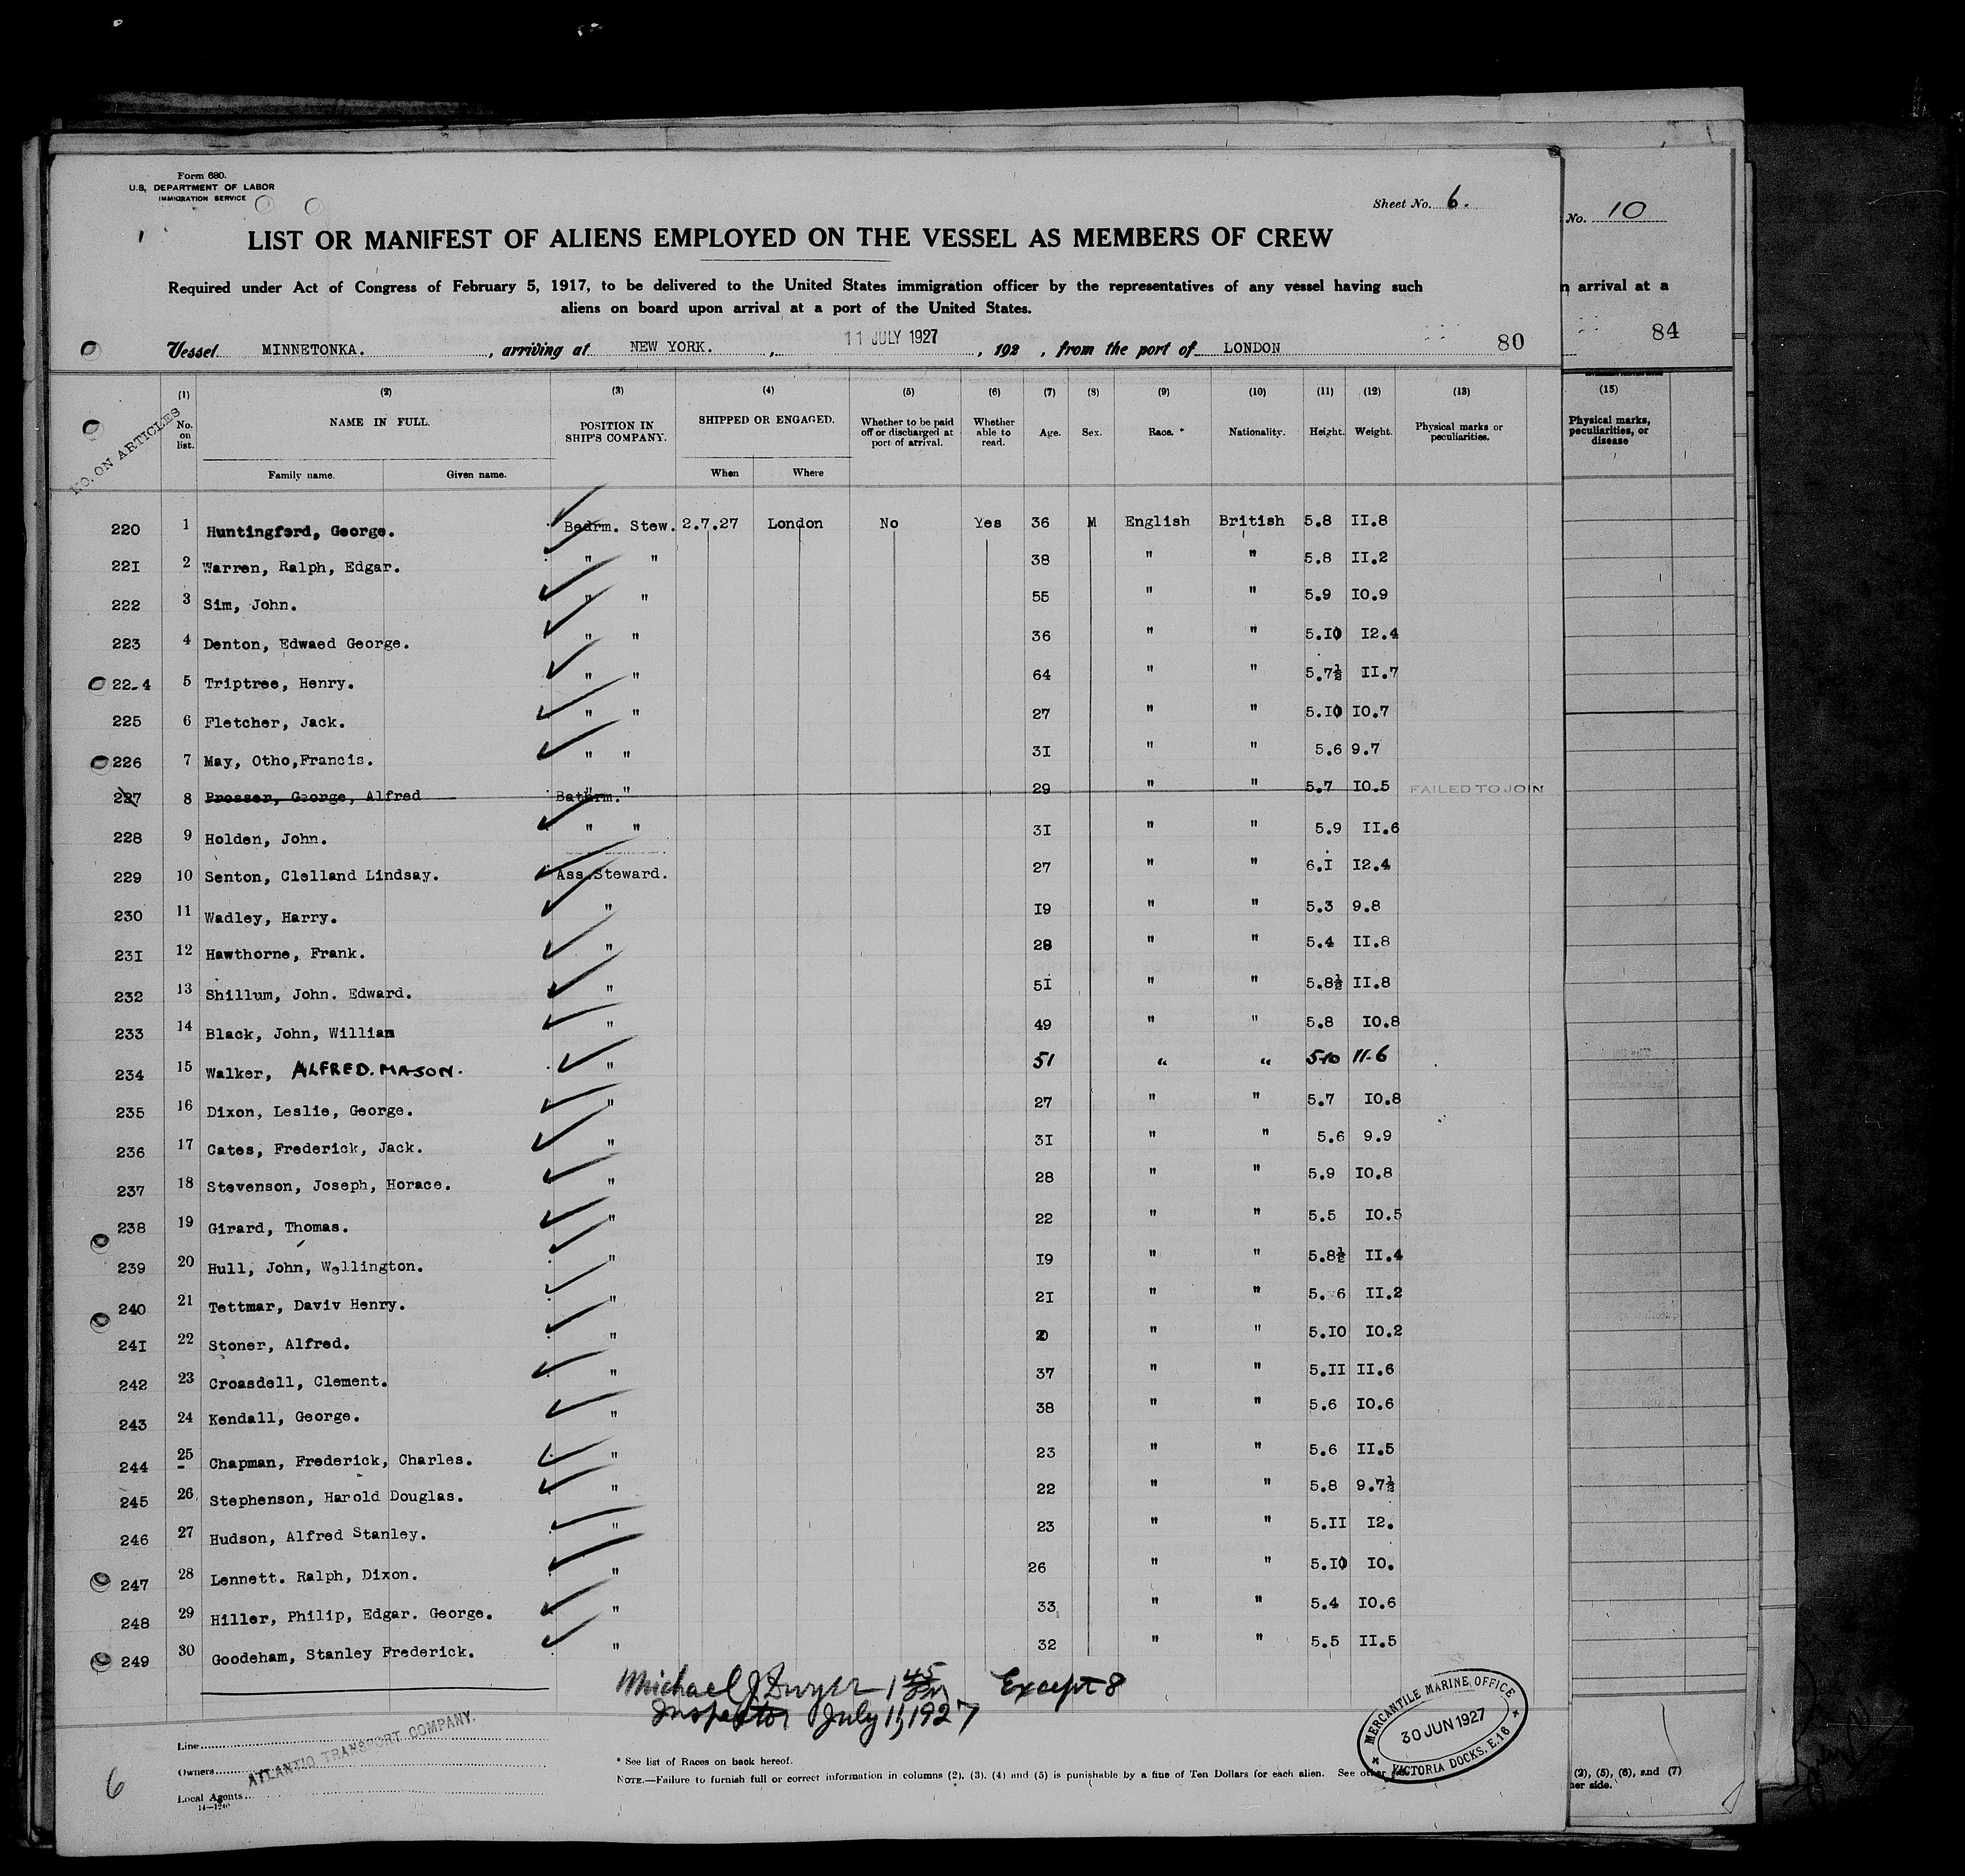 Form 680.
U.S. DEPARTMENT OF LABOR
IMMIGRATION SERVICE
Sheet No. 6.
No. 10
LIST OR MANIFEST OF ALIENS EMPLOYED ON THE VESSEL AS MEMBERS OF CREW
Required under Act of Congress of February 5, 1917, to be delivered to the United States immigration officer by the representatives of any vessel having such
aliens on board upon arrival at a port of the United States.
n arrival at a
Vessel MINNETONKA. , arriving at NEW YORK. , 11 JULY 1927 , 192 , from the port of LONDON 80
84
NO. ON ARTICLES
(1) (2) (3) (4) (5) (6) (7) (8) (9) (10) (11) (12) (13) (15)
No. on list. NAME IN FULL. POSITION IN SHIP'S COMPANY. SHIPPED OR ENGAGED. Whether to be paid off or discharged at port of arrival. Whether able to read. Age. Sex. Race. * Nationality. Height. Weight. Physical marks or peculiarities. Physical marks, peculiarities, or disease
Family name. Given name. When Where
220 1 Huntingford, George. Bedrm. Stew. 2.7.27 London No Yes 36 M English British 5.8 II.8
22I 2 Warren, Ralph, Edgar. " " 38 " " 5.8 II.2
222 3 Sim, John. " " 55 " " 5.9 I0.9
223 4 Denton, Edwaed George. " " 36 " " 5.I0 I2.4
22.4 5 Triptree, Henry. " " 64 " " 5.7½ II.7
225 6 Fletcher, Jack. " " 27 " " 5.I0 I0.7
226 7 May, Otho,Francis. " " 3I " " 5.6 9.7
227 8 Prosser, George, Alfred Bathrm. " 29 " " 5.7 I0.5 FAILED TO JOIN
228 9 Holden, John. " " 3I " " 5.9 II.6
229 10 Senton, Clelland Lindsay. Ass.Steward. 27 " " 6.I I2.4
230 11 Wadley, Harry. " I9 " " 5.3 9.8
23I 12 Hawthorne, Frank. " 28 " " 5.4 II.8
232 13 Shillum, John. Edward. " 5I " " 5.8½ II.8
233 14 Black, John, William " 49 " " 5.8 I0.8
234 15 Walker, ALFRED. MASON. " 51 " " 5 10 11-6
235 16 Dixon, Leslie, George. " 27 " " 5.7 I0.8
236 17 Cates, Frederick, Jack. " 3I " " 5.6 9.9
237 18 Stevenson, Joseph, Horace. " 28 " " 5.9 I0.8
238 19 Girard, Thomas. " 22 " " 5.5 I0.5
239 20 Hull, John, Wellington. " I9 " " 5.8½ II.4
240 21 Tettmar, Daviv Henry. " 2I " " 5. 6 II.2
24I 22 Stoner, Alfred. " 20 " " 5.I0 I0.2
242 23 Croasdell, Clement. " 37 " " 5.II II.6
243 24 Kendall, George. " 38 " " 5.6 I0.6
244 25 Chapman, Frederick, Charles. " 23 " " 5.6 II.5
245 26 Stephenson, Harold Douglas. " 22 " " 5.8 9.7½
246 27 Hudson, Alfred Stanley. " 23 " " 5.II I2.
247 28 Lennett. Ralph, Dixon. " 26 " " 5.I0 I0.
248 29 Hiller, Philip, Edgar. George. " 33 " " 5.4 I0.6
249 30 Goodeham, Stanley Frederick. " 32 " " 5.5 II.5
Michael J Dwyer 1 45 Except 8
Inspector July 11, 1927
MERCANTILE MARINE OFFICE
30 JUN 1927
VICTORIA DOCKS, E.16
Line
Owners
ATLANTIC TRANSPORT COMPANY.
Local Agents
6
* See list of Races on back hereof.
NOTE.—Failure to furnish full or correct information in columns (2), (3), (4) and (5) is punishable by a fine of Ten Dollars for each alien. See other
(2), (5), (6), and (7)
her side.